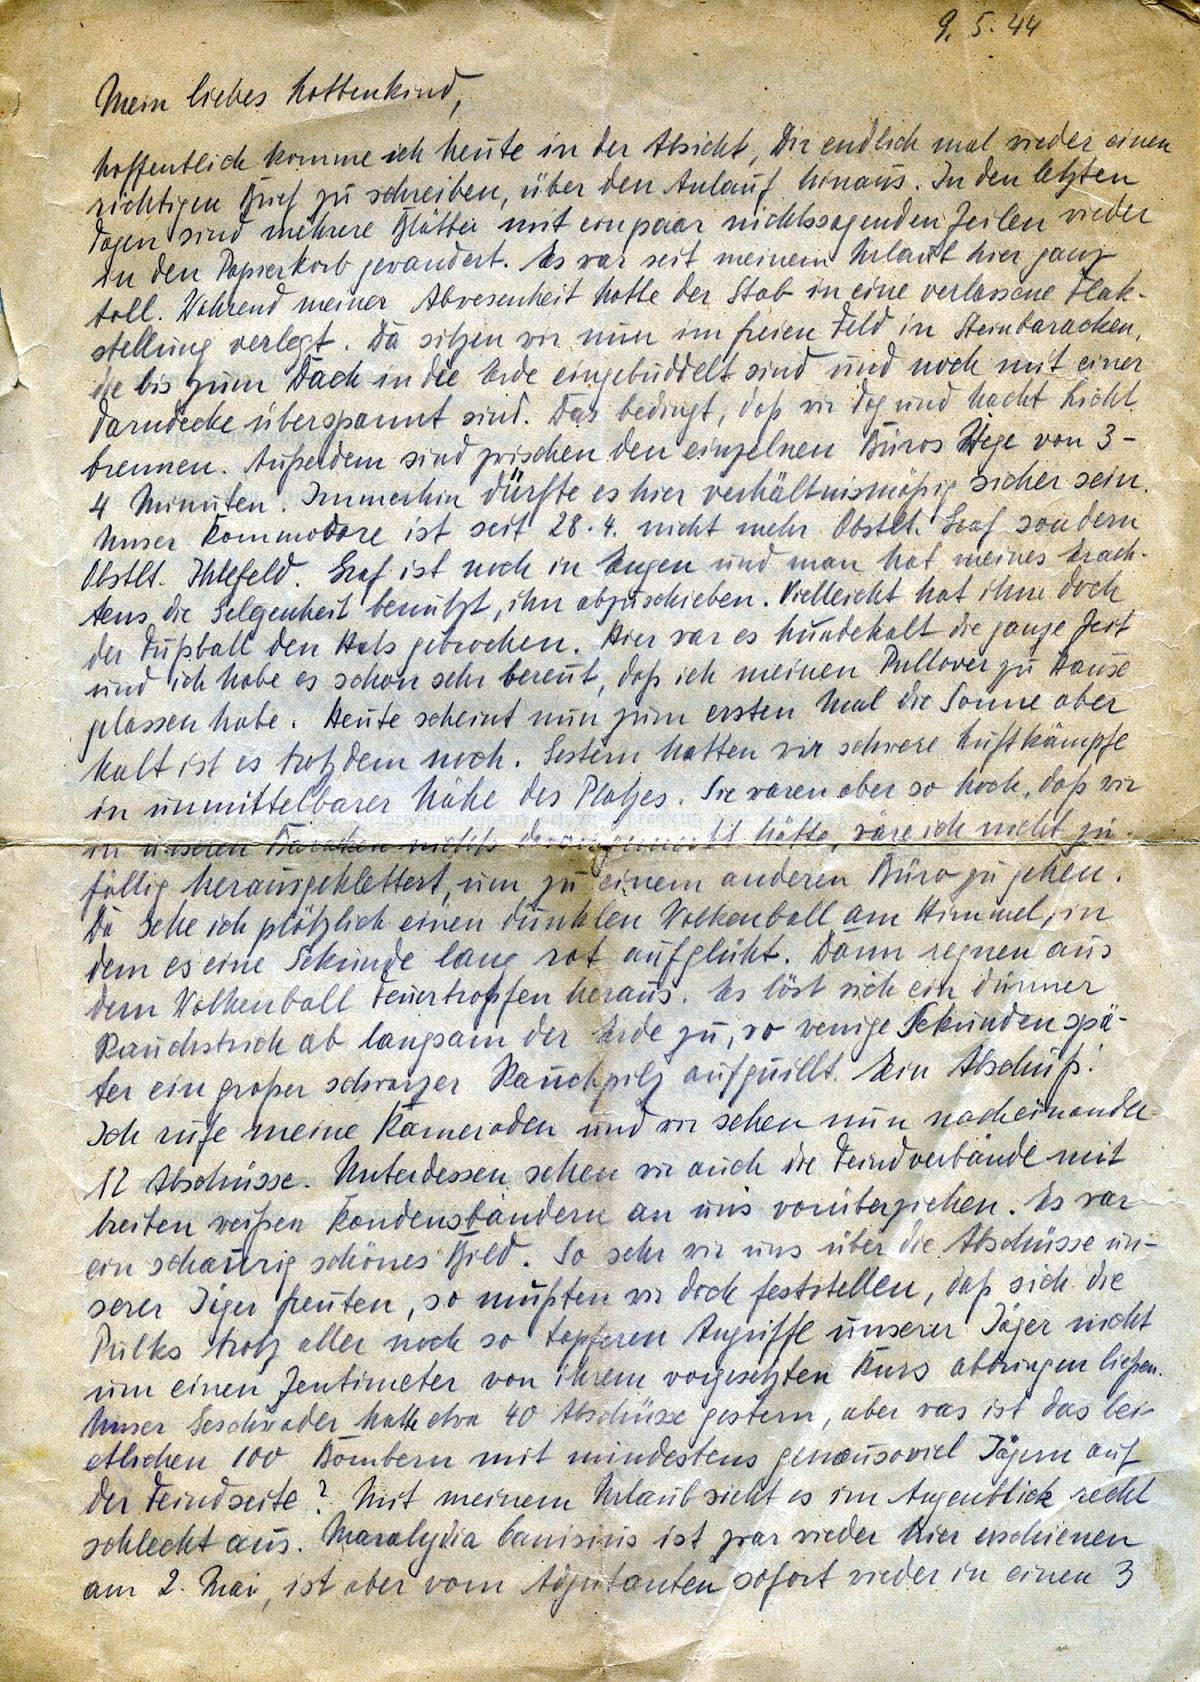 9. 5. 44
Mein liebes Hottenkind,
hoffentlich komme ich heute in der Absicht, Dir endlich mal wieder einen
richtigen Brief zu schreiben, über den Anlauf hinaus. In den letzten
Tagen sind mehrere Blätter mit ein paar nichtssagenden Zeilen wieder
in den Papierkorb gewandert. Es war seit meinem Urlaub hier ganz
toll. Während meiner Abwesenheit hatte der Stab in eine verlassene Flak-
stellung verlegt. Da sitzen wir nun im freien Feld in Steinbaracken,
die bis zum Dach in die Erde eingebuddelt sind und noch mit einer
Tarndecke überspannt sind. Das bedingt, daß wir Tag und Nacht Licht
brennen. Außerdem sind zwischen den einzelnen Büros Wege von 3-
4 Minuten. Immerhin dürfte es hier verhältnismäßig sicher sein.
Unser Kommodore ist seit 28.4. nicht mehr Obstlt. Graf sondern
Obstlt. Ihlefeld. Graf ist noch in Engen und man hat meines Erach-
tens die Gelegenheit benützt, ihn abzuschieben. Vielleicht hat ihm doch
der Fußball den Hals gebrochen. Hier war es hundekalt die ganze Zeit
und ich habe es schon sehr bereut, daß ich meinen Pullover zu Hause
gelassen habe. Heute scheint nun zum ersten Mal die Sonne aber
kalt ist es trotzdem noch. Gestern hatten wir schwere Luftkämpfe
in unmittelbarer Nähe des Platzes. Sie waren aber so hoch, daß wir
in unseren Baracken nichts hätte, wäre ich nicht zu-
fällig herausgeklettert, um zu einem anderen Büro zu gehen.
Da sehe ich plötzlich einen dunklen Wolkenball am Himmel, in
dem es eine Sekunde lang rot aufglüht. Dann regnen aus
dem Wolkenball Feuertropfen heraus. Es löst sich ein dünner
Rauchstrich ab langsam der Erde zu, wo wenige Sekunden spä-
ter ein großer schwarzer Rauchpilz aufquillt. Ein Abschuß!
Ich rufe meine Kameraden und wir sehen nun nacheinander
12 Abschüsse. Unterdessen sehen wir auch die Feindverbände mit
breiten weißen Kondensbändern an uns vorüberziehen. Es war
ein schaurig schönes Bild. So sehr wir uns über die Abschüsse un-
serer Jäger freuten, so mußten wir doch feststellen, daß sich die
Pulks trotz aller noch so tapferen Angriffe unserer Jäger nicht
um einen Zentimeter von ihrem vorgesetzten Kurs abbringen ließen.
Unser Geschwader hatte etwa 40 Abschüsse gestern, aber was ist das bei
etlichen 100 Bombern mit mindestens genausoviel Jägern auf
der Feindseite? Mit meinem Urlaub sieht es im Augenblick recht
schlecht aus. Maralydia Canisius ist zwar wieder hier erschienen
am 2. Mai, ist aber vom Adjutanten sofort wieder in einen 3